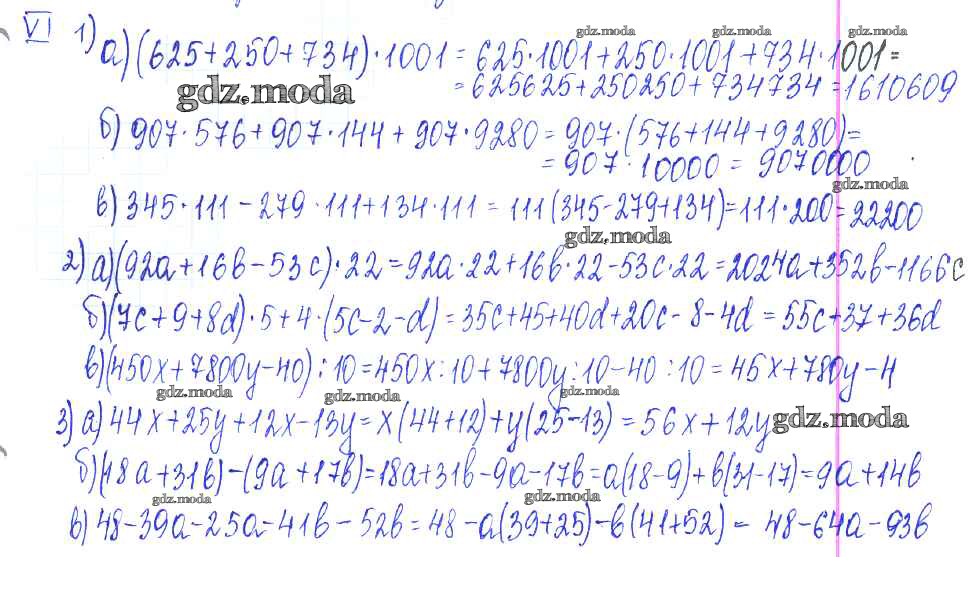 VI 1) а) (625+250+734)·1001 = 625·1001+250·1001+734·1001=
= 625625+250250+734734=1610609
б) 907·576+907·144+907·9280 = 907·(576+144+9280)=
= 907·10000 = 9070000
в) 345·111-279·111+134·111 = 111(345-279+134)=111·200=22200
2) а) (92a+16b-53c)·22=92a·22+16b·22-53c·22=2024a+352b-1166c
б) (7c+9+8d)·5+4·(5c-2-d)=35c+45+40d+20c-8-4d = 55c+37+36d
в) (450x+7800y-40):10=450x:10+7800y:10-40:10=45x+780y-4
3) а) 44x+25y+12x-13y=x(44+12)+y(25-13)=56x+12y
б) (18a+31b)-(9a+17b)=18a+31b-9a-17b=a(18-9)+b(31-17)=9a+14b
в) 48-39a-25a-41b-52b=48-a(39+25)-b(41+52)= 48-64a-93b
gdz.moda
gdz.moda
gdz.moda
gdz.moda
gdz.moda
gdz.moda
gdz.moda
gdz.moda
gdz.moda
gdz.moda
gdz.moda
gdz.moda